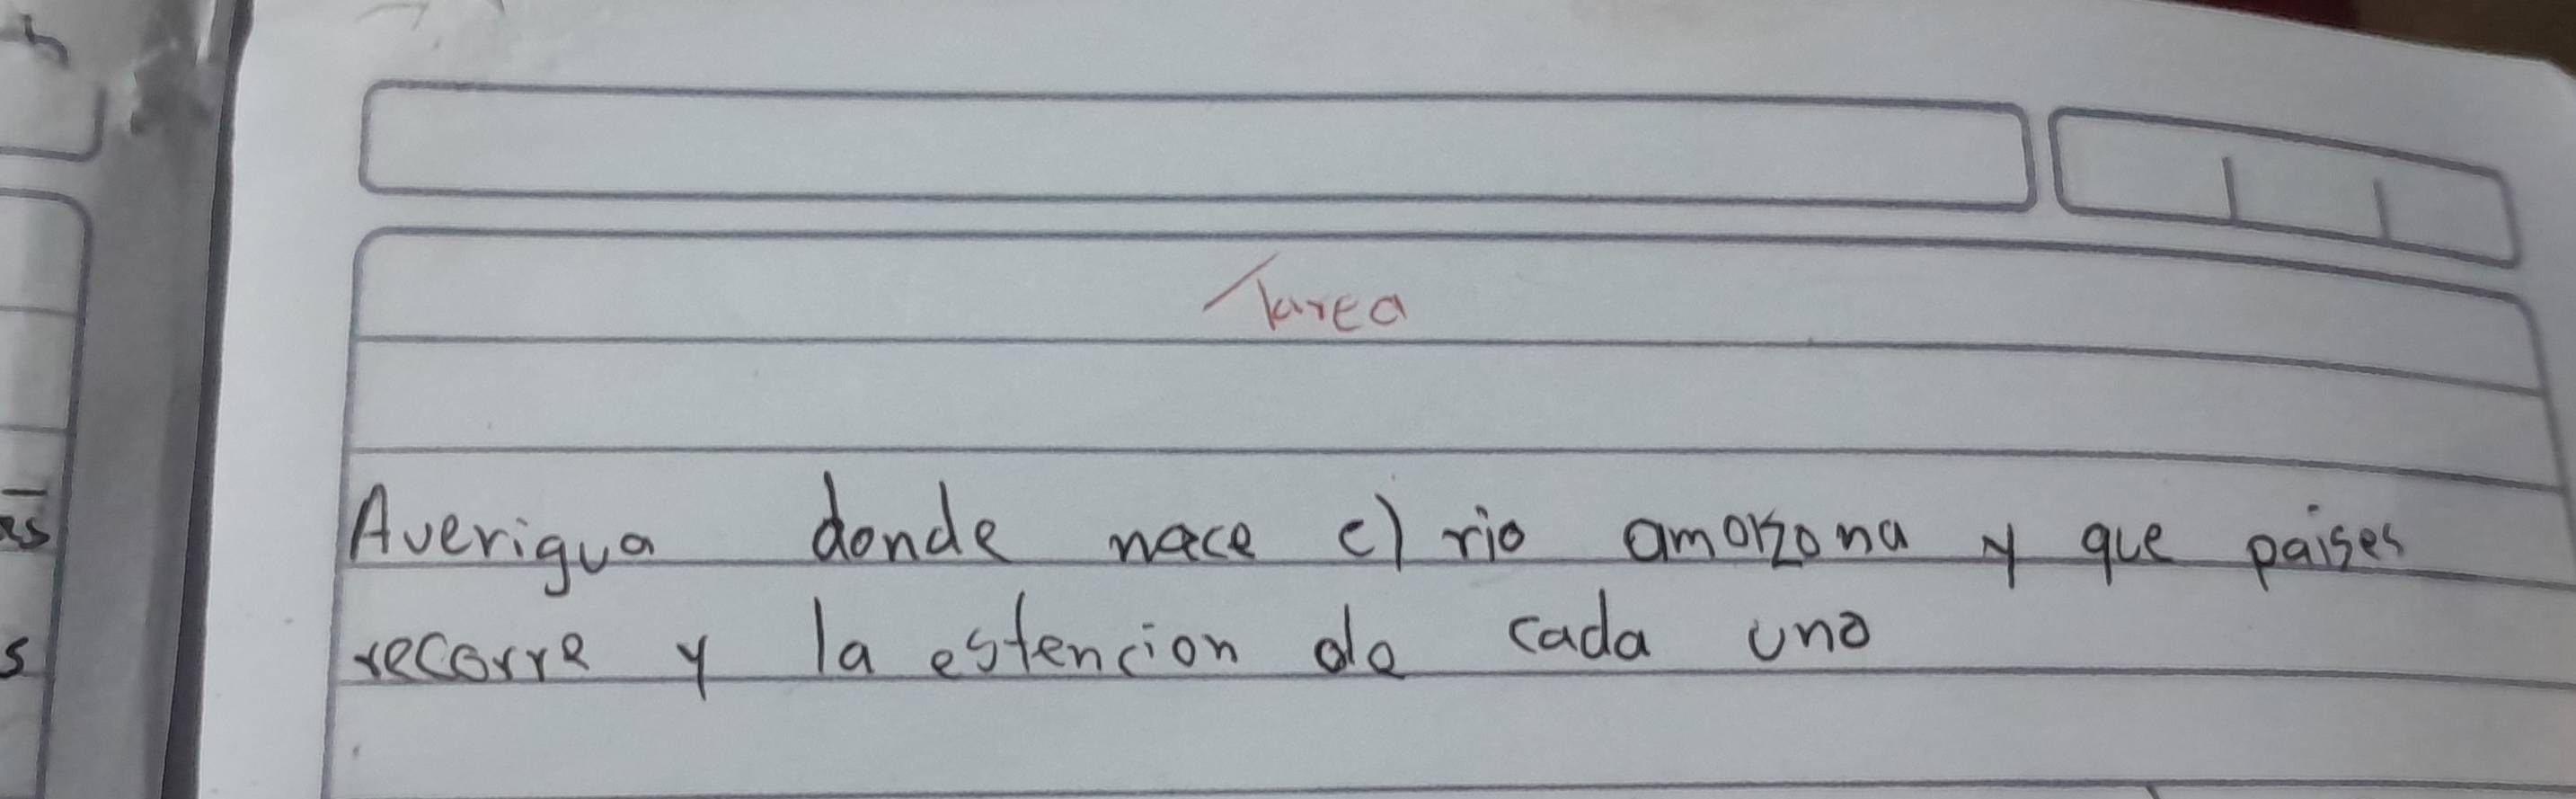 Tarea
Averigua donde nace el rio amazona y que paises
recorre y la estencion de cada uno